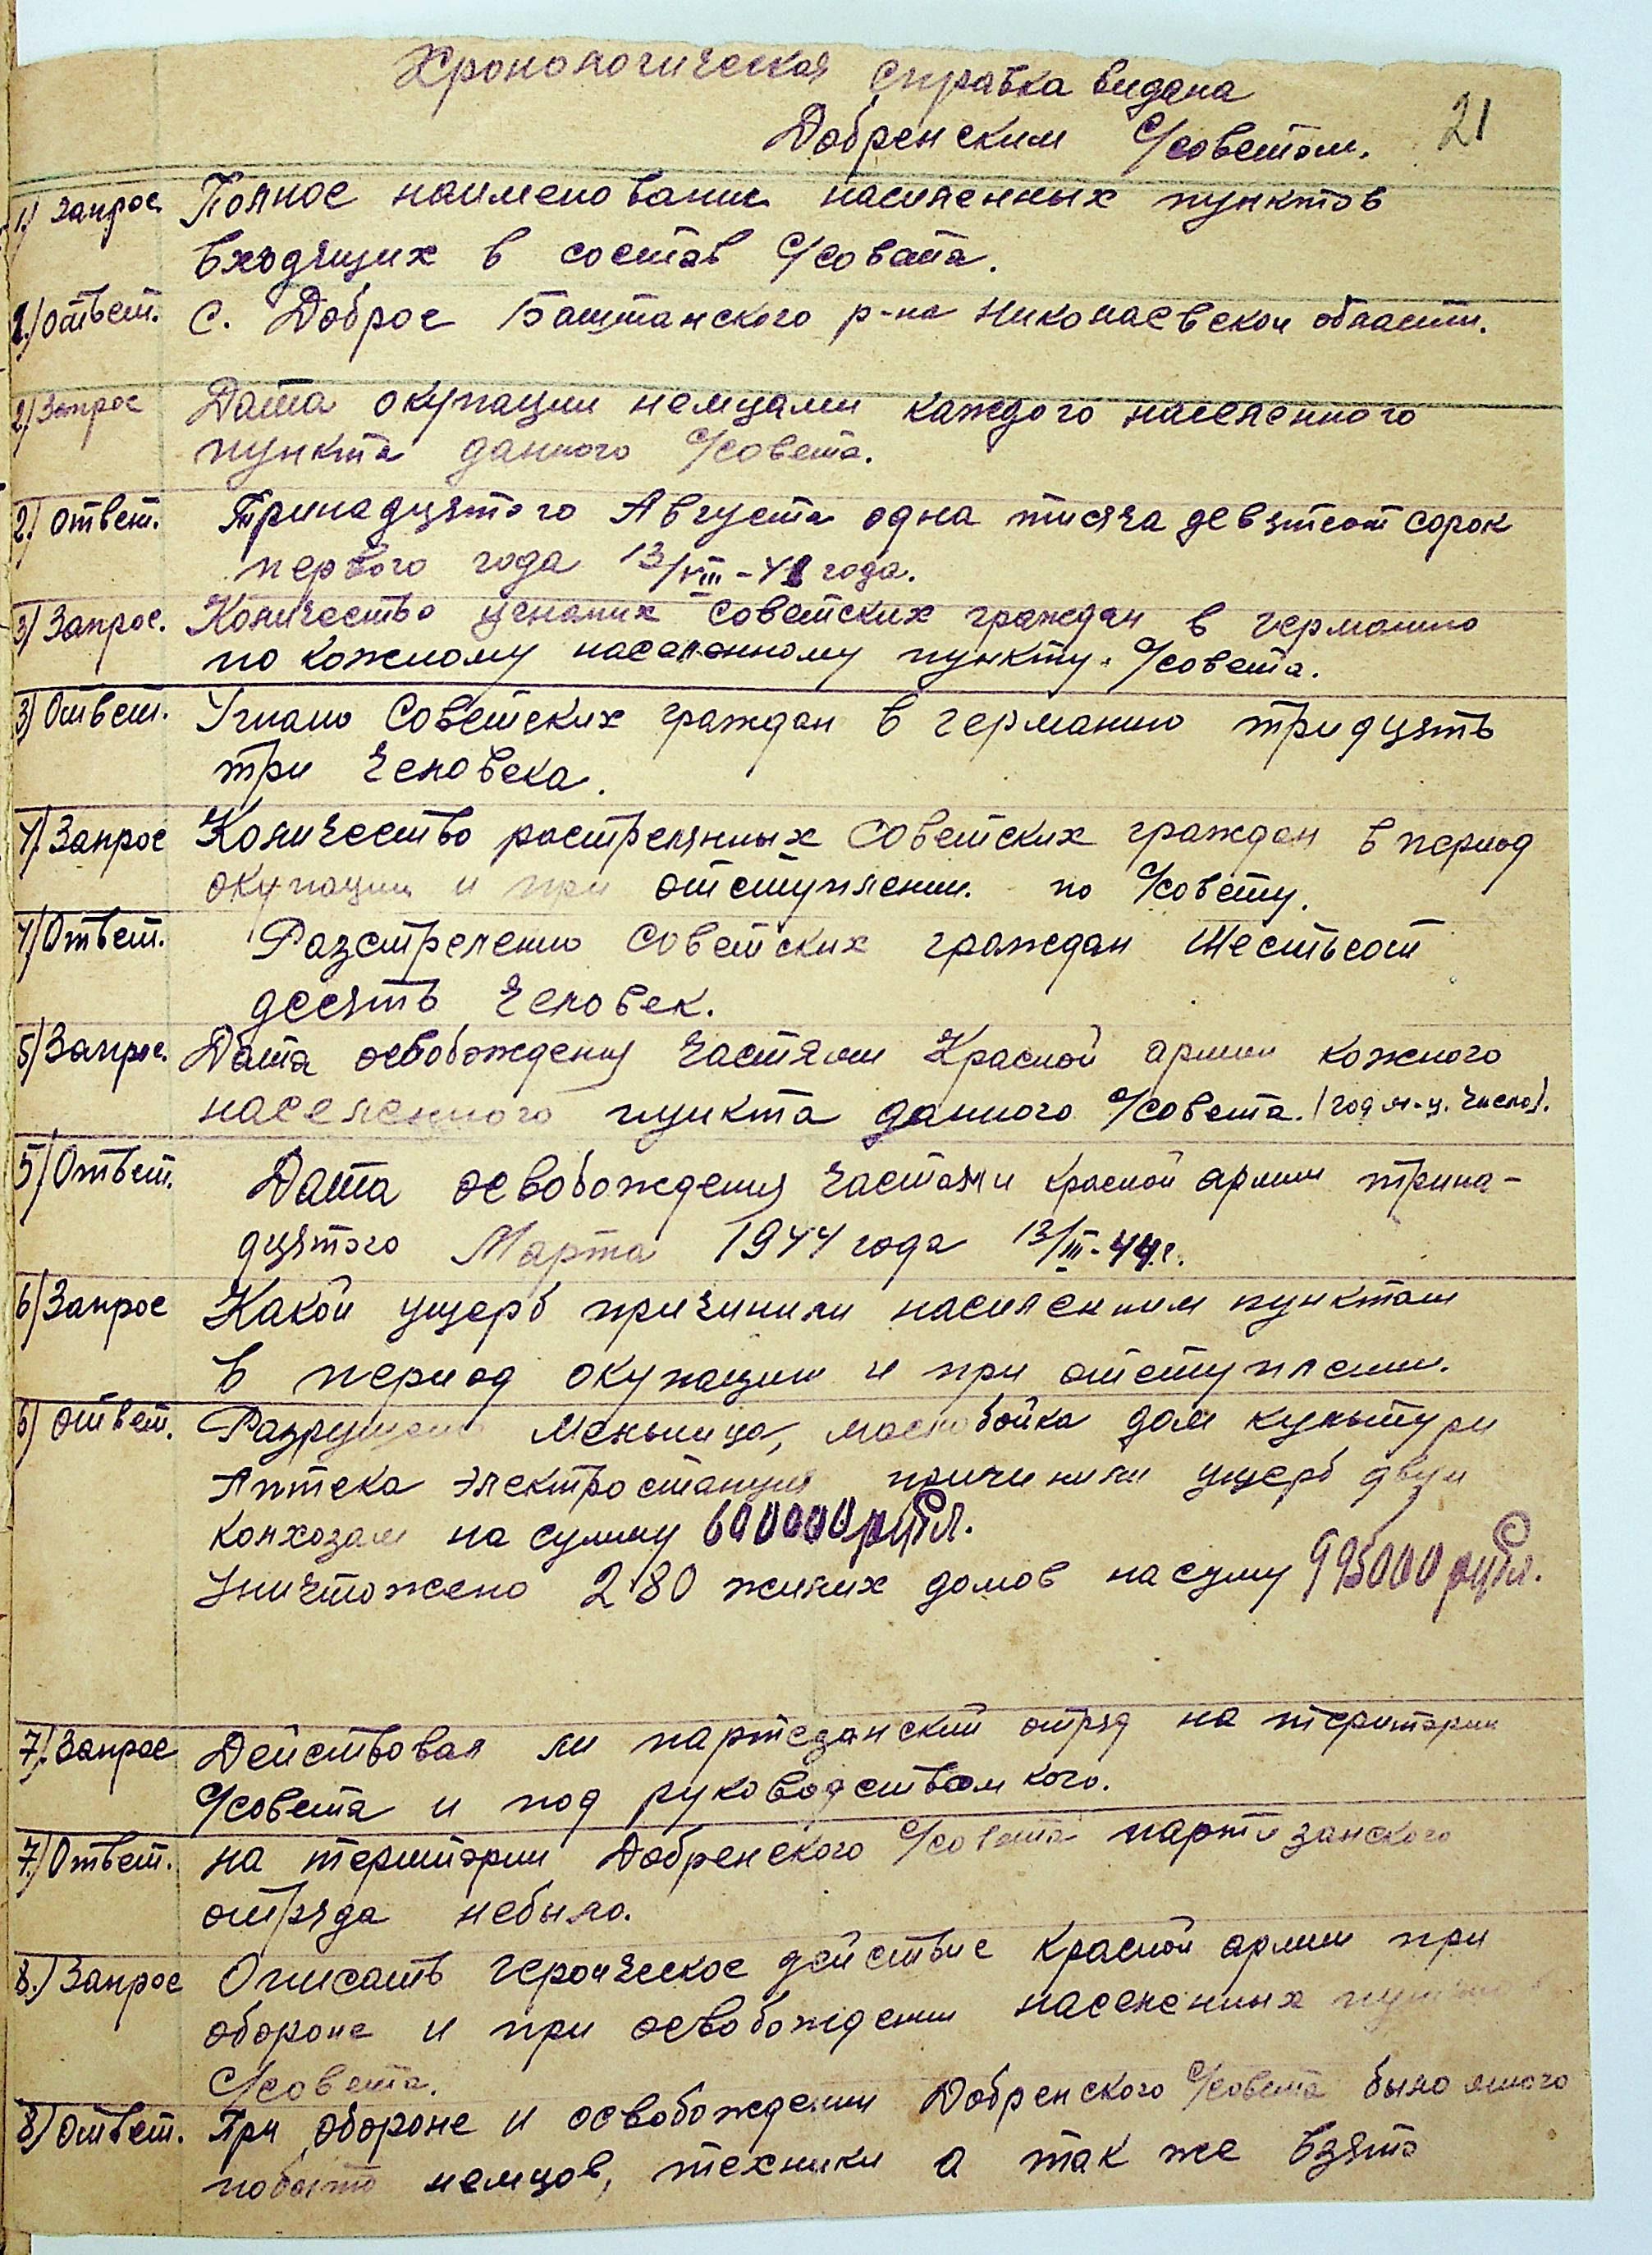 Хронологическая справка видана
Добренским С/советом.
21
1) Запрос. Полное наименование населенных пунктов
входящих в состав С/совета.
1.) Ответ. С. Доброе Баштанского р-на Николаевской области.
2) Запрос Дата окупации немцами каждого населенного
пункта данного С/совета.
2.) ответ. Тринадцятого Августа одна тисяча девятсот сорок
первого года 13/VIII-41 года.
3) Запрос. Количество угнаних советских граждан в германию
по кожному населенному пункту С/совета.
3) Ответ. Угнано Советских граждан в германию тридцять
три человека.
4) Запрос Количество растрелянных советских граждан в период
окупации и при отступлении по С/совету.
4) Ответ. Разстреленно советских граждан Шестьсот
десять человек.
5) Запрос. Дата освобождения частями Красной армии кожного
населенного пункта данного С/совета. (год м-ц. число).
5) Ответ. Дата освобождения частями красной армии трина-
дцятого Марта 1944 года 13/III-44 г.
6) Запрос Какой ущерб причинили населенним пунктам
в период окупации и при отступлении.
6) ответ. Разрушено Мельница, маслобойка дом культури
Аптека электростанция причинили ущерб двум
колхозам на сумму 600000 рубл.
Уничтожено 280 жилих домов на суму 995000 рубл.
7) Запрос Действовал ли партезанский отряд на територии
С/совета и под руководством кого.
7) Ответ. на територии Добренского С/совета партизанского
отряда небыло.
8.) Запрос Описать героическое действие красной армии при
обороне и при освобождении населенных пунктов
С/совета.
8) Ответ. При обороне и освобождении Добренского С/совета было много
побито немцов, техники а так же взято